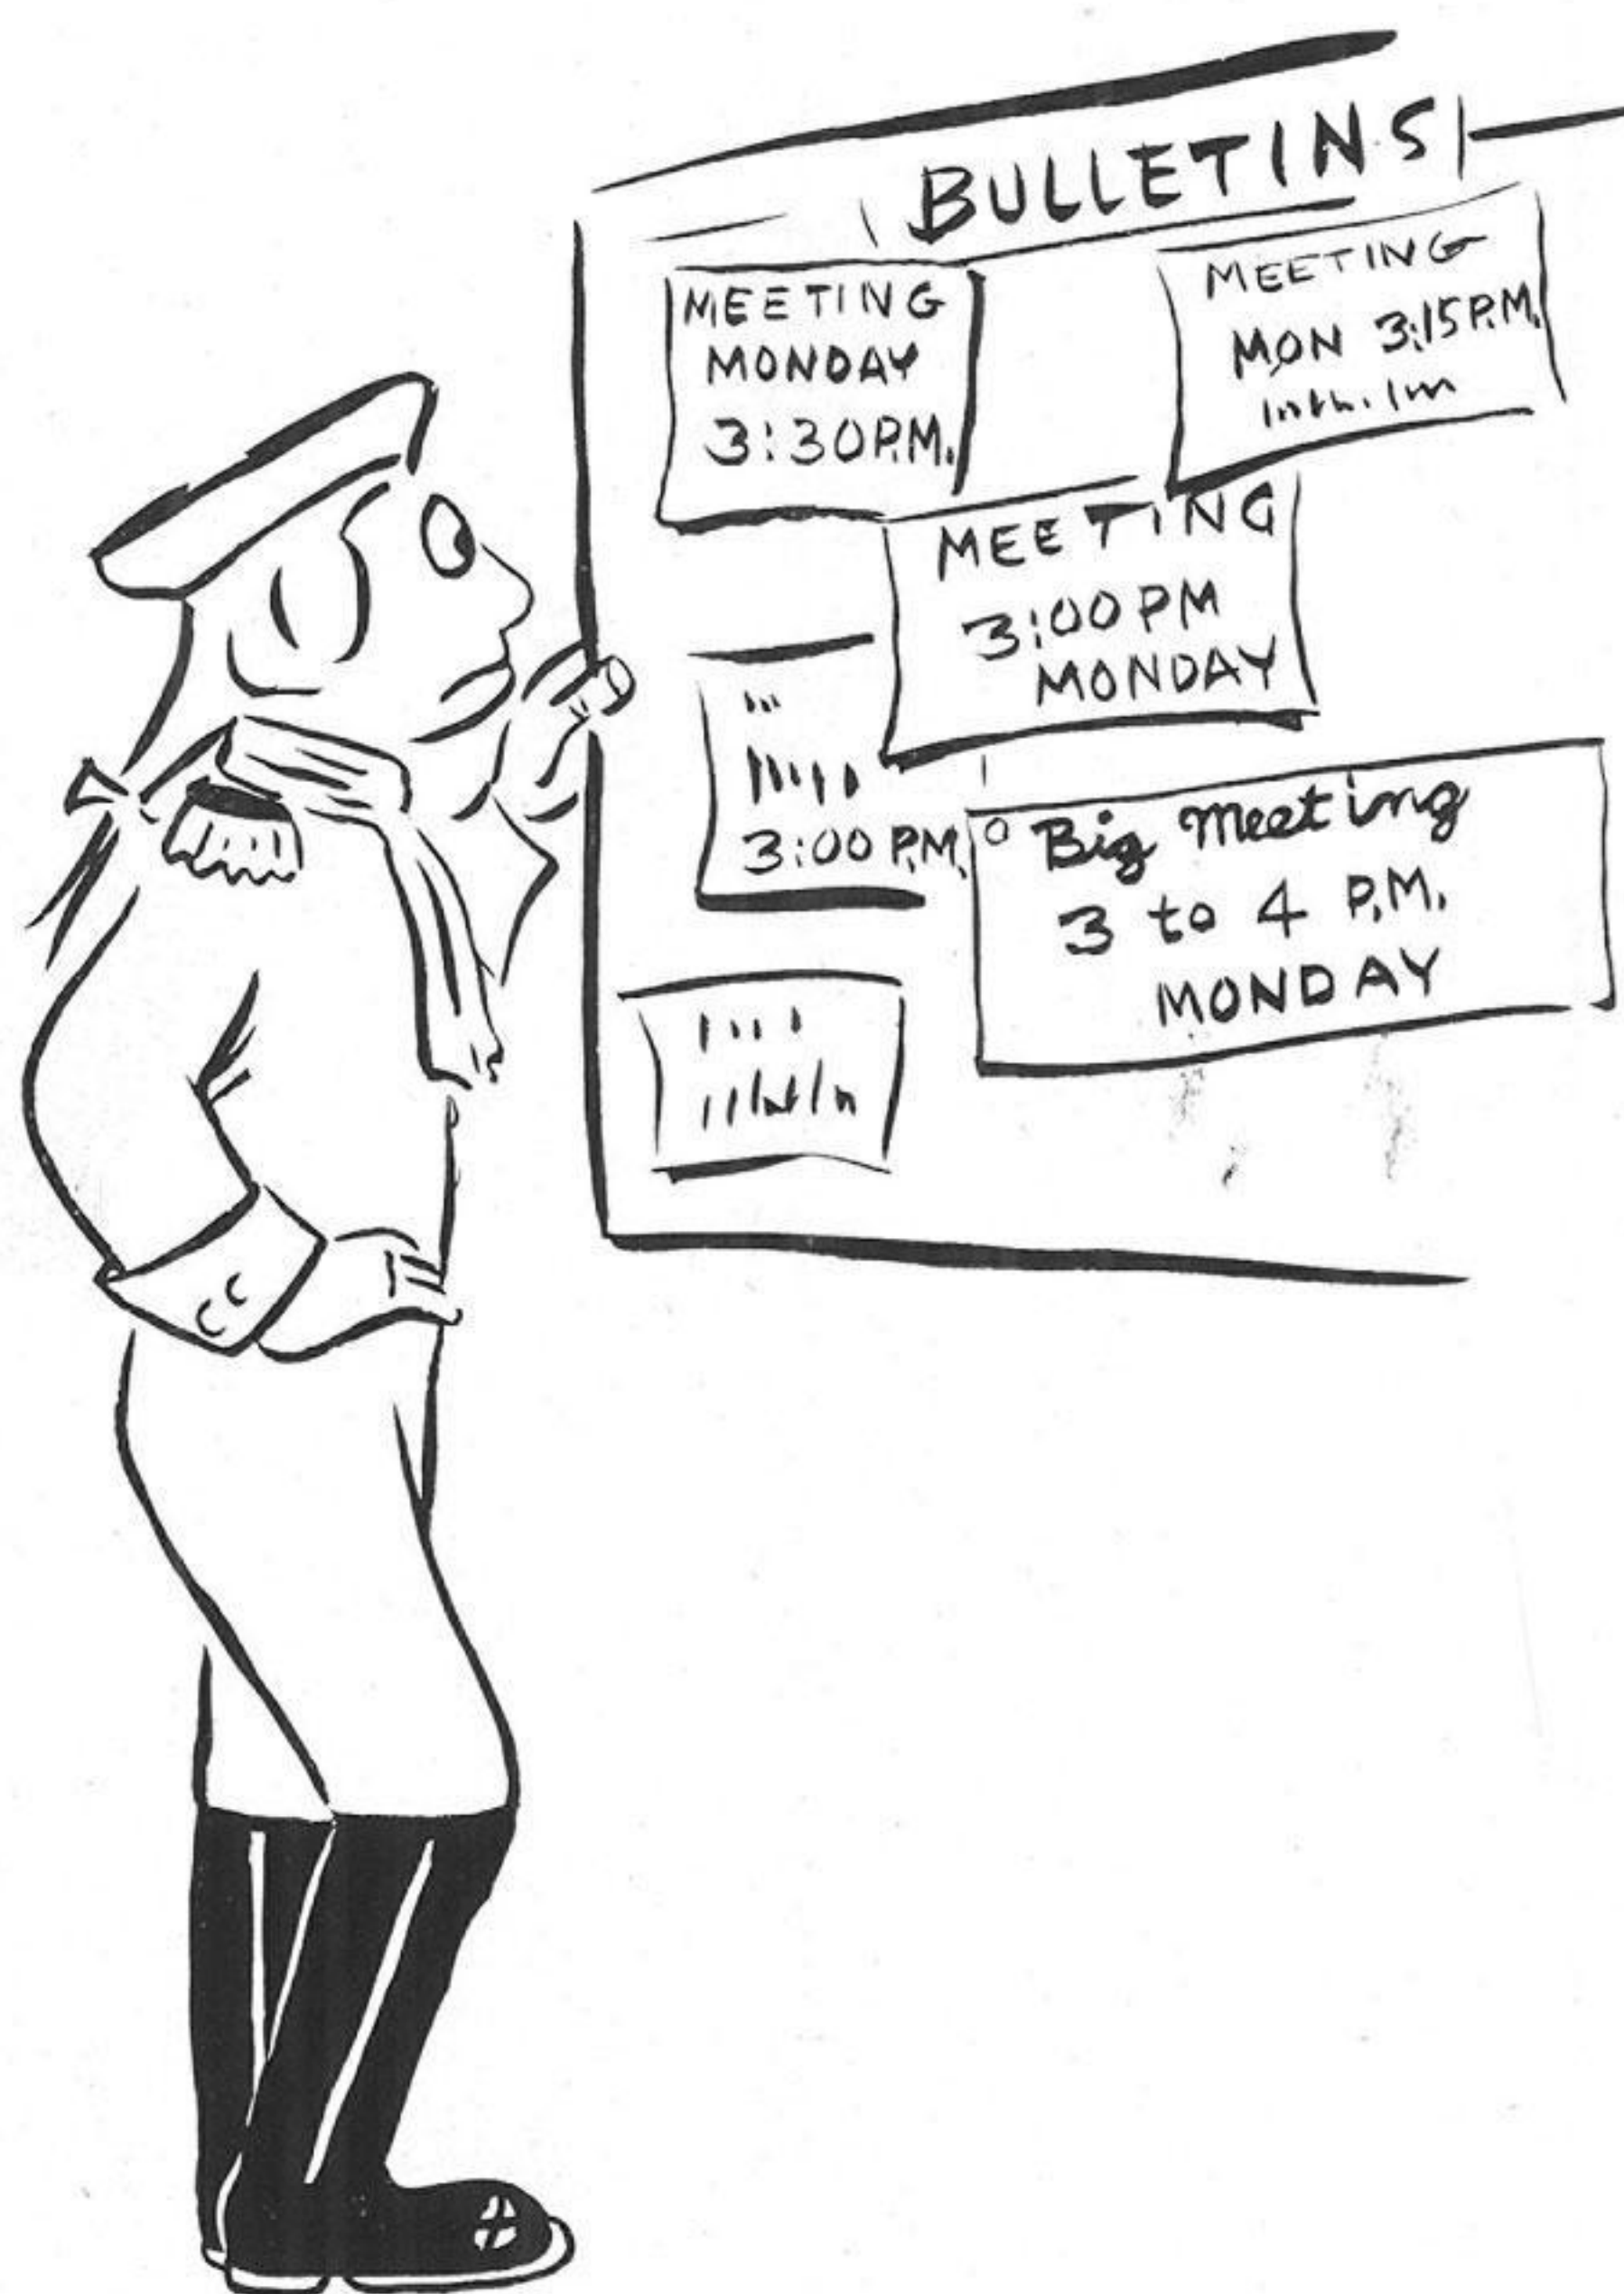 BULLETINS
MEETING
MONDAY
3:30P.M.
MEETING
MON 3:15P.M.
MEETING
3:00PM
MONDAY
3:00 P.M.
Big Meeting
3 to 4 P.M.
MONDAY